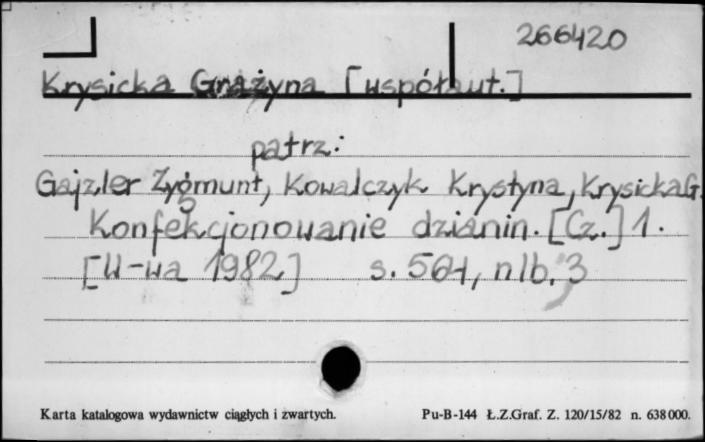 266420
Krysicka Grażyna [współaut.]
patrz:
Gajzler Zygmunt, Kowalczyk Krystyna, Krysicka G.
Konfekcjonowanie dzianin. [Cz.] 1.
[W-wa 1982] s. 561, nlb. 3
Karta katalogowa wydawnictw ciągłych i zwartych. Pu-B-144 Ł.Z.Graf. Z. 120/15/82 n. 638000.